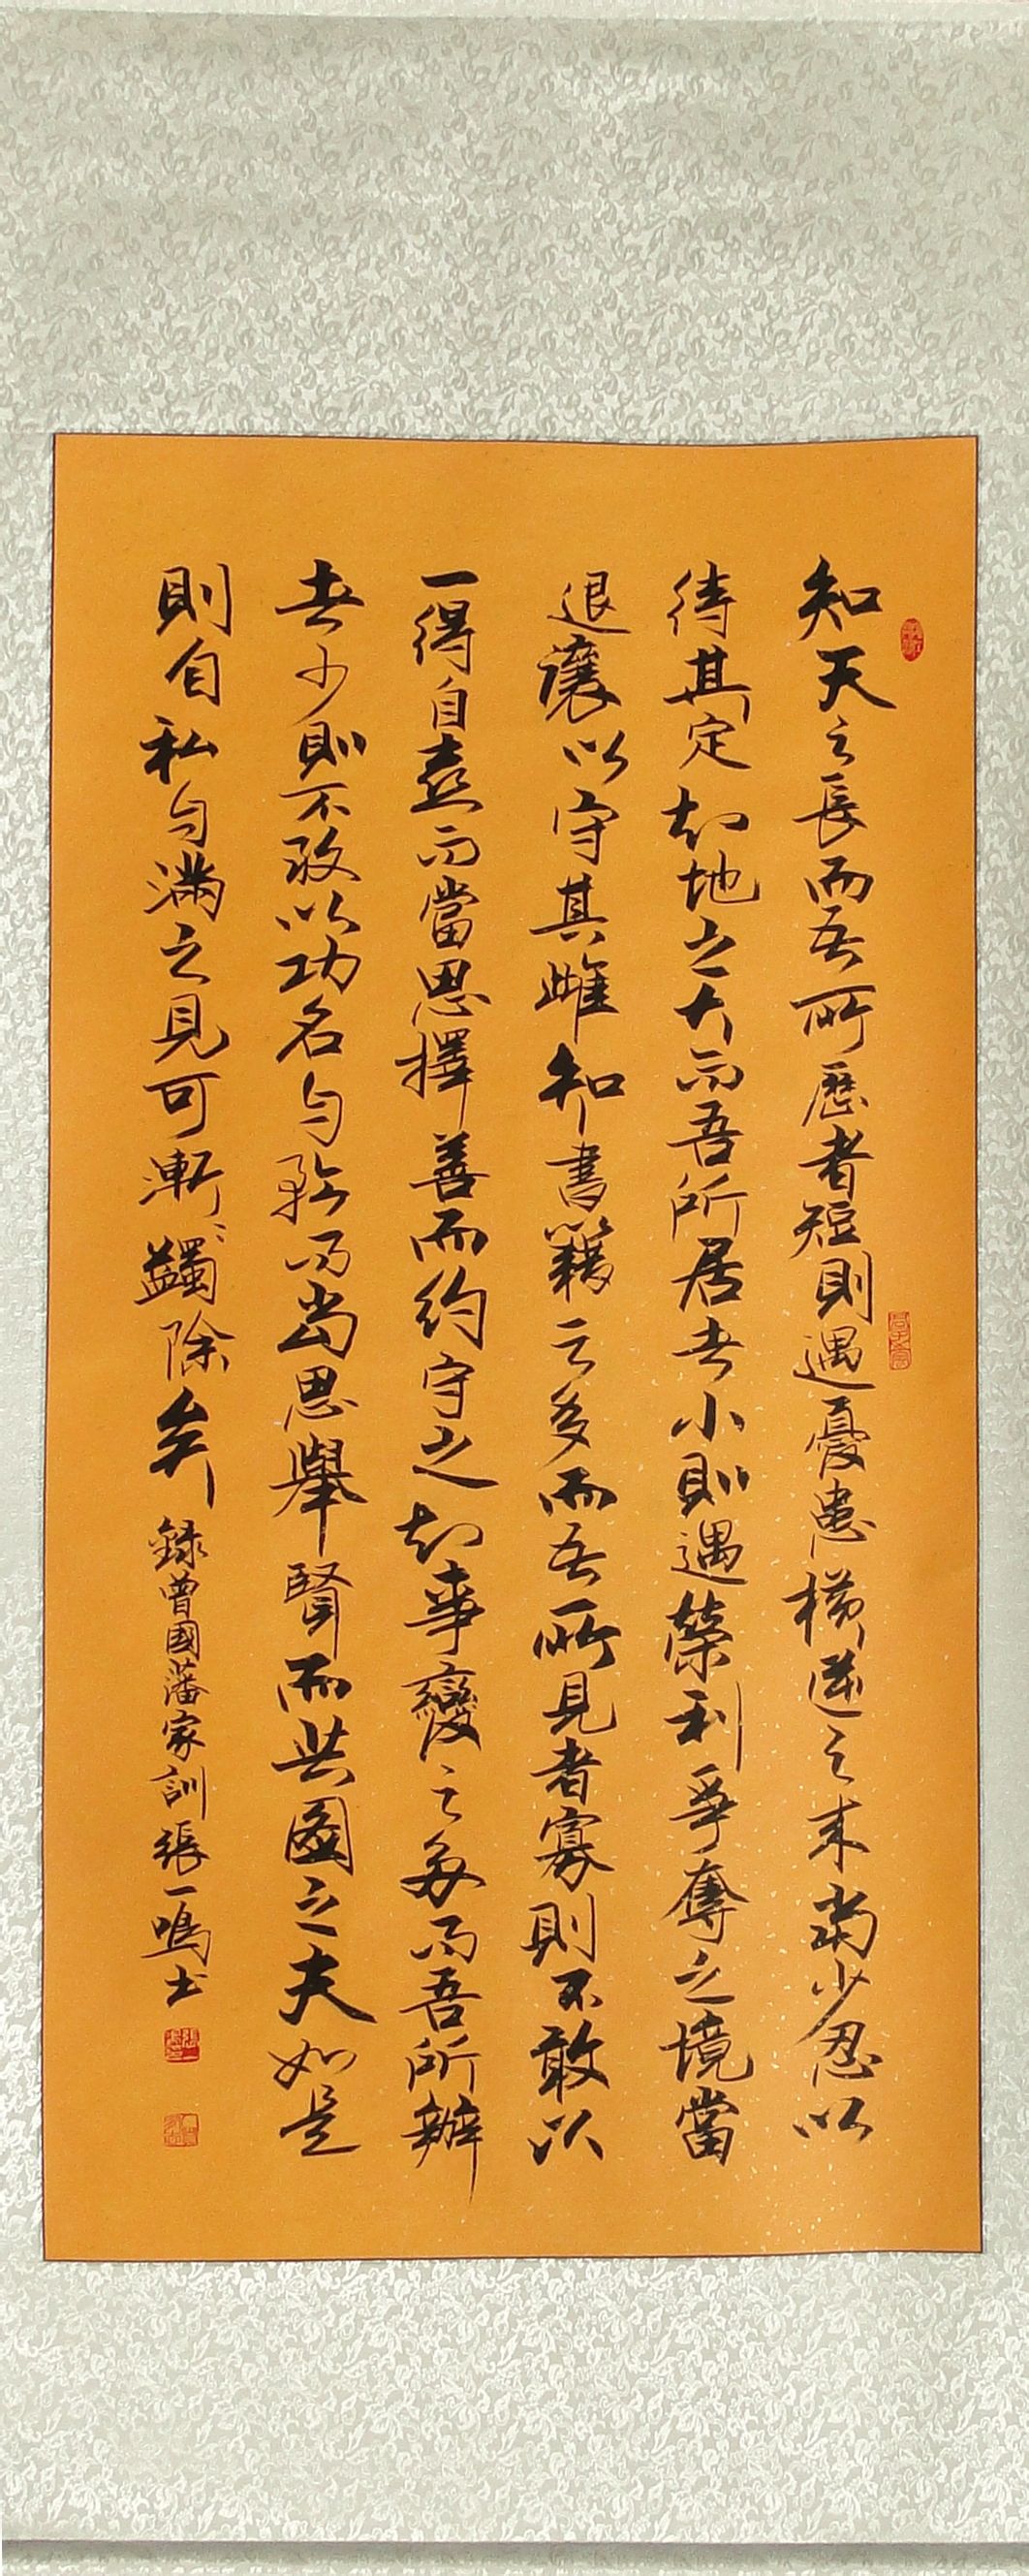 知天之長而吾所歷者短則遇憂患橫逆之來當少忍以
待其定知地之大而吾所居者小則遇榮利爭奪之境當
退讓以守其雌知書籍之多而吾所見者寡則不敢以
一得自喜而當思擇善而約守之知事變之多而吾所辦
者少則不敢以功名自矜而當思舉賢而共圖之夫如是
則自私自滿之見可漸漸蠲除矣
錄曾國藩家訓張一鳴書